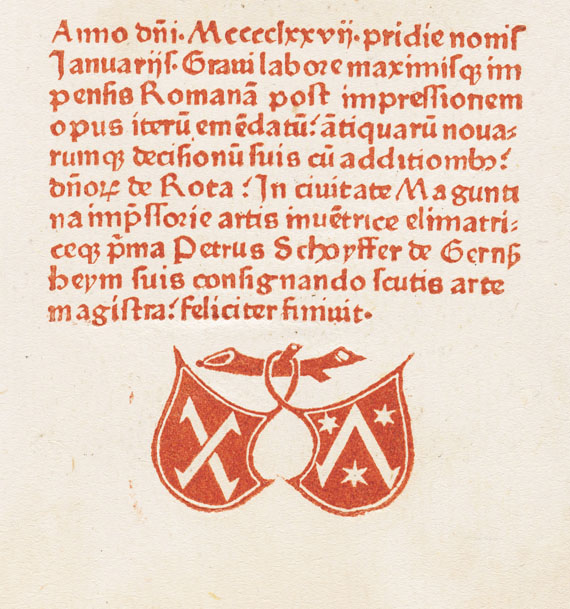 Anno dñi· Mccccclxxvij· pridie nonis
Januarijs· Graui labore maximisqꝫ im
pensis Romanā post impressionem
opus iterū emēdatū: ātiquarū noua⸗
rumqꝫ decisionū suis cū additiōibꝫ:
dñoꝝ de Rota : In ciuitate Magunti
na imp̄ssorie artis inuētrice elimatri⸗
ceqꝫ p̄ma Petrus Schoyffer de Gernß
heym suis consignando scutis arte
magistra: feliciter finiuit·